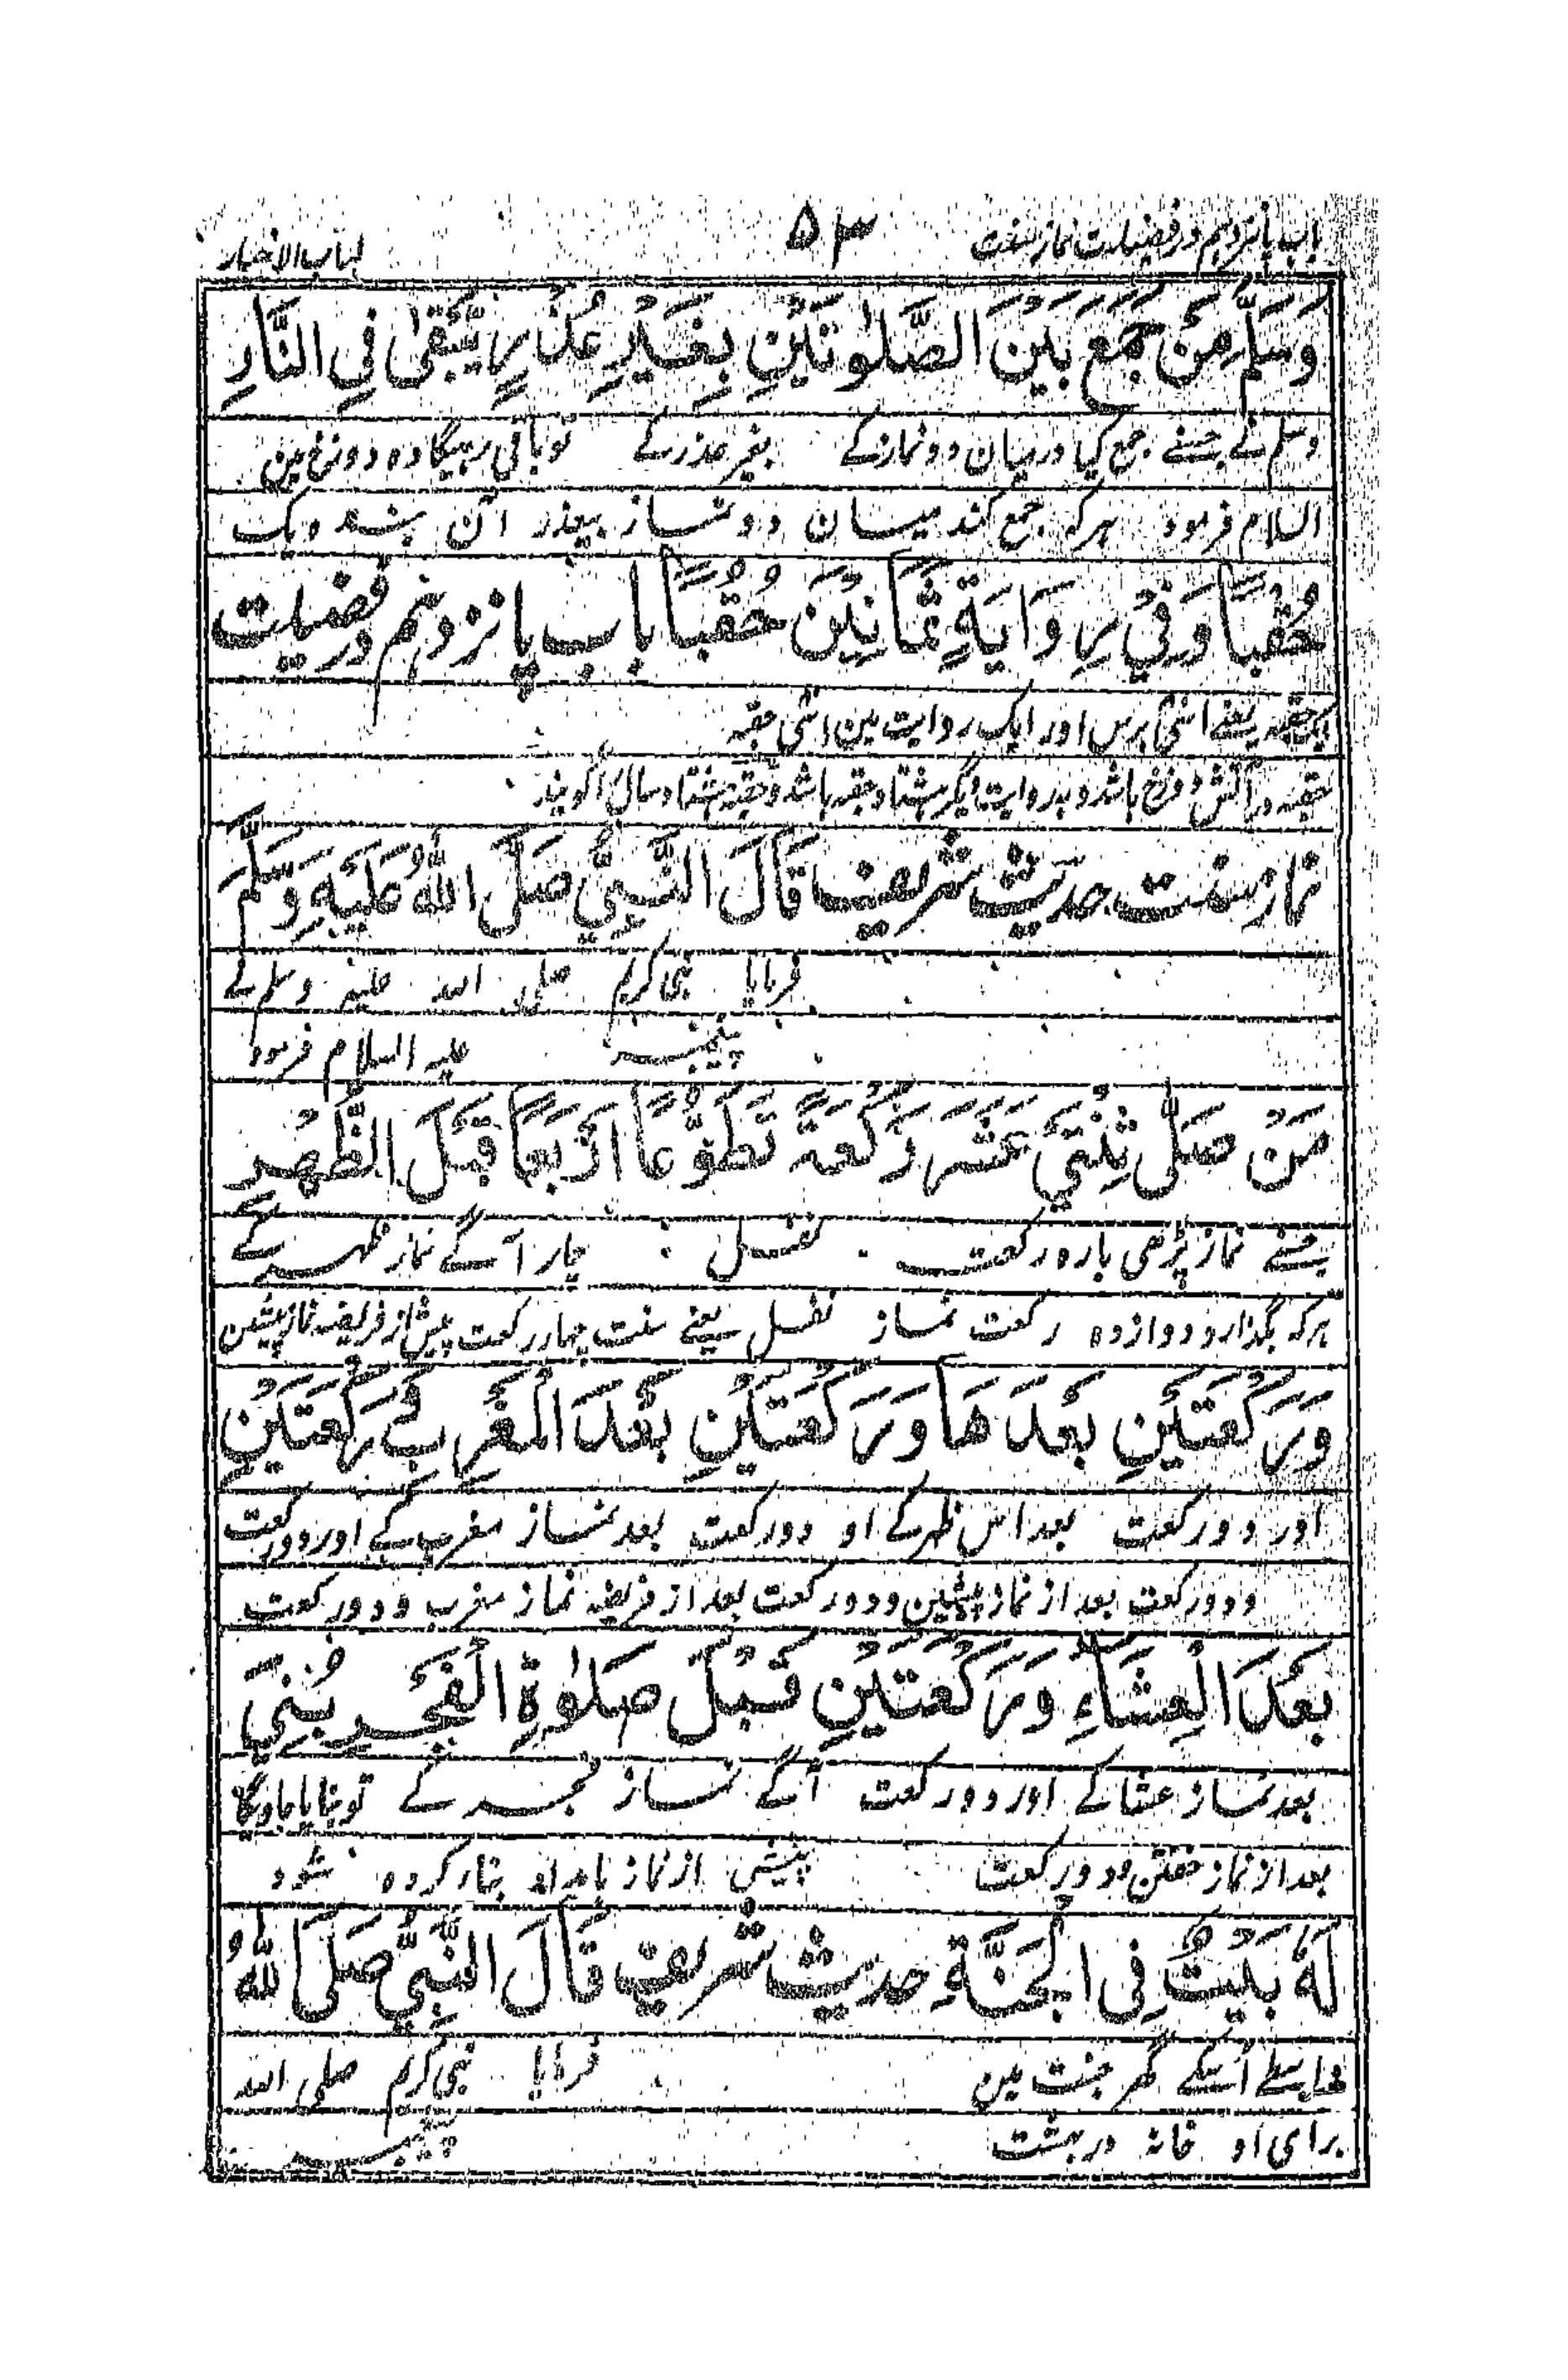 باب پانزدہم در فضیلت نماز سنت ۵۳ لباب الاخبار
وَسَلَّمَ مَنْ جَمَعَ بَيْنَ الصَّلٰوتَيْنِ بِغَيْرِ عُذْرٍ يَبْقٰى فِي النَّارِ
وسلم نے جسنے جمع کیا درمیان دو نمازکے بغیر عذرکے تو باقی رہیگا وہ دوزخ مین
السلام فرمود ہرکہ جمع کند میان دو نماز بیعذر آن بندہ یک
حُقُبًا وَفِيْ رِوَايَةٍ ثَمَانِيْنَ حُقُبًا باب پانزدہم در فضیلت
یکحقبہ یعنے اسّی برس اور ایک روایت مین اسّی حقبہ
حقبہ در آتش دوزخ باشد و بدروایت دیگر ہشتاد حقبہ باشد و حقبہ ہشتاد سال را گویند
نماز سنت حدیث شریف قَالَ النَّبِيُّ صَلَّى اللهُ عَلَيْهِ وَسَلَّمَ
فرمایا نبی کریم صلی اللہ علیہ وسلم نے
پیغمبر علیہ السلام فرمود
مَنْ صَلّٰى ثِنْتَيْ عَشَرَ رَكْعَةً تَطَوُّعًا اَرْبَعًا قَبْلَ الظُّهْرِ
جسنے نماز پڑھی بارہ رکعت نفل چار آگے نماز ظہر کے
ہرکہ بگذارد دوازدہ رکعت نماز نفل یعنے سنت چہار رکعت پیش از فریضہ نماز پیشین
وَرَكْعَتَيْنِ بَعْدَهَا وَرَكْعَتَيْنِ بَعْدَ الْمَغْرِبِ وَرَكْعَتَيْنِ
اور دو رکعت بعد اس ظہر کے او دو رکعت بعد نماز مغرب کے اور دو رکعت
و دو رکعت بعد از نماز پیشین و دو رکعت بعد از فریضہ نماز مغرب و دو رکعت
بَعْدَ الْعِشَاءِ وَرَكْعَتَيْنِ قَبْلَ صَلٰوةِ الْفَجْرِ بُنِيَ
بعد نماز عشا کے اور دو رکعت آگے نماز فجر کے تو بنایا جاویگا
بعد از نماز خفتن و دو رکعت پیش از نماز بامداد بنا کردہ شود
لَهٗ بَيْتٌ فِي الْجَنَّةِ حدیث شریف قَالَ النَّبِيُّ صَلَّى اللهُ
واسطے اُسکے گھر جنت مین فرمایا نبی کریم صلی اللہ
برای او خانہ در بہشت پیغمبر